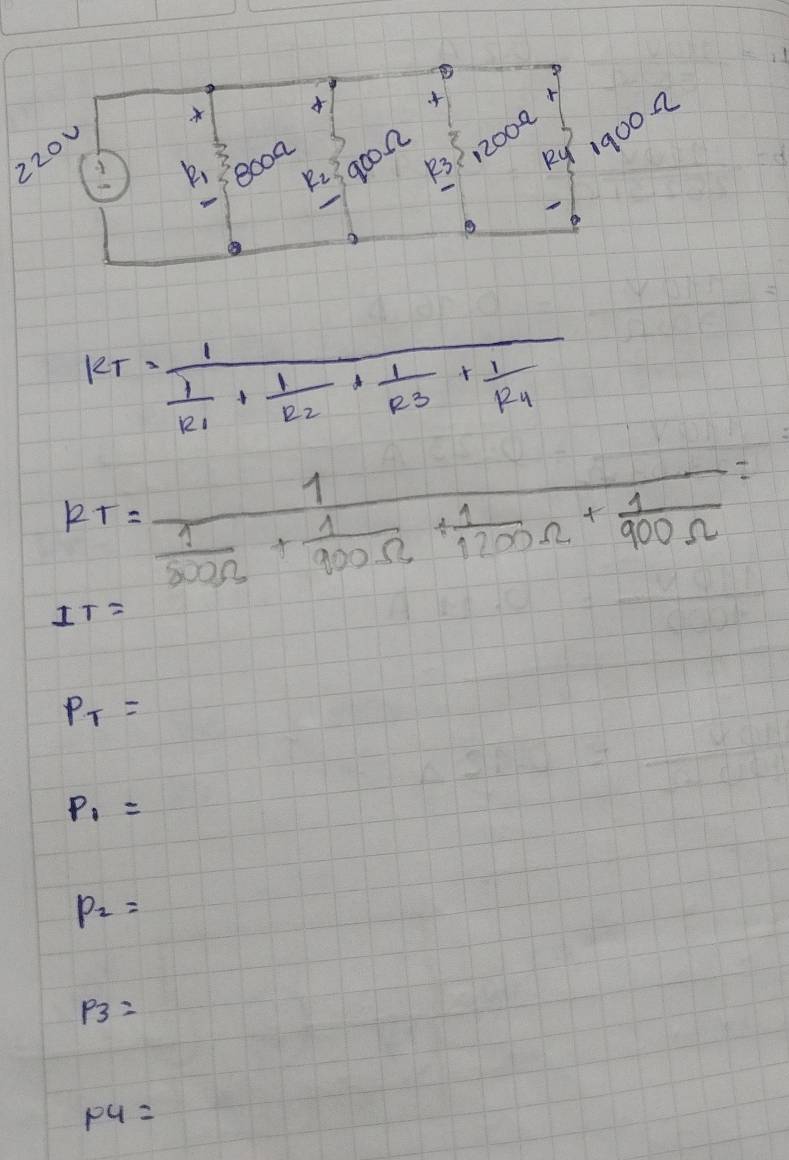 220V
+ + + +
R1 800Ω R2 900Ω R3 1200Ω R4 1900Ω
- - - -
RT = 1 / (1/R1 + 1/R2 + 1/R3 + 1/R4)
RT = 1 / (1/800Ω + 1/900Ω + 1/1200Ω + 1/900Ω) =
IT =
PT =
P1 =
P2 =
P3 =
P4 =